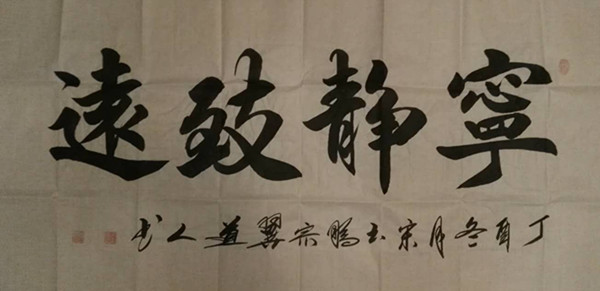 寧静致遠
丁酉冬月宋玉鵬宗翼道人书